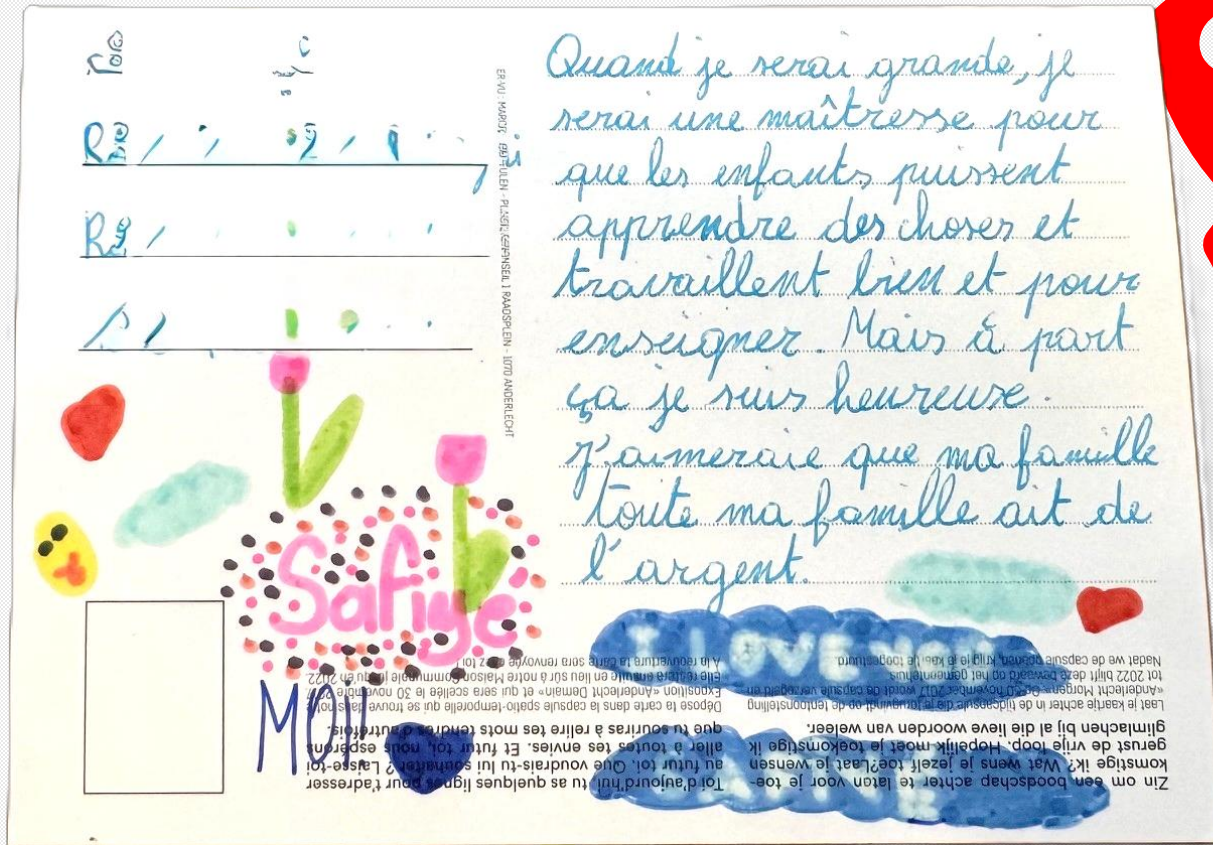 Quand je serai grande, je
serai une maîtresse pour
que les enfants puissent
apprendre des choses et
travaillent bien et pour
enseigner. Mais à part
ça je suis heureuse.
J'aimeraie que ma famille
toute ma famille ait de
l'argent.
Safiye
MOI!
I LOVE
1 RAADSPLEIN - 1070 ANDERLECHT
Toi d'aujourd'hui tu as quelques lignes pour t'adresser
au futur toi. Que voudrais-tu lui souhaiter? Laisse-toi
aller à toutes tes envies. Et futur toi, nous espérons
que tu souriras à relire tes mots tendres d'autrefois.
Dépose ta carte dans la capsule spatio-temporelle qui se trouve dans notre
Exposition «Anderlecht Demain» et qui sera scellée le 30 novembre
Elle restera ensuite en lieu sûr à notre Maison Communale jusqu'en 2022.
À la réouverture ta carte sera renvoyée chez toi!
Zin om een boodschap achter te laten voor je toe-
komstige ik? Wat wens je jezelf toe? Laat je wensen
gerust de vrije loop. Hopelijk moet je toekomstige ik
glimlachen bij al die lieve woorden van weleer.
Laat je kaartje achter in de tijdcapsule die je terugvindt op de tentoonstelling
«Anderlecht Morgen». Op 30 november 2017 wordt de capsule verzegeld en
tot 2022 blijft deze bewaard op het gemeentehuis
Nadat we de capsule openen, krijg je je kaartje toegestuurd.